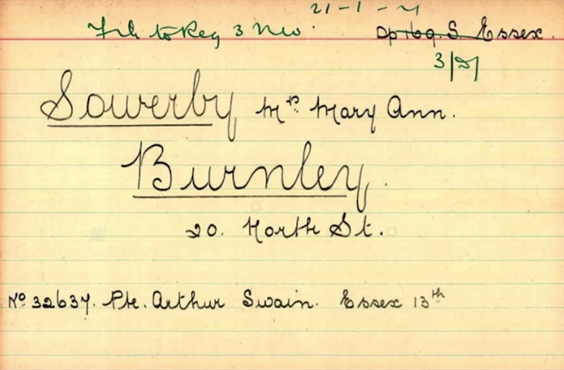 21-1-21
File to Reg 3 Nw. Sp. 169. S. Essex.
3/21
Sowerby Mrs Mary Ann.
Burnley.
20. North St.
No 32637. Pte. Arthur Swain. Essex 13th